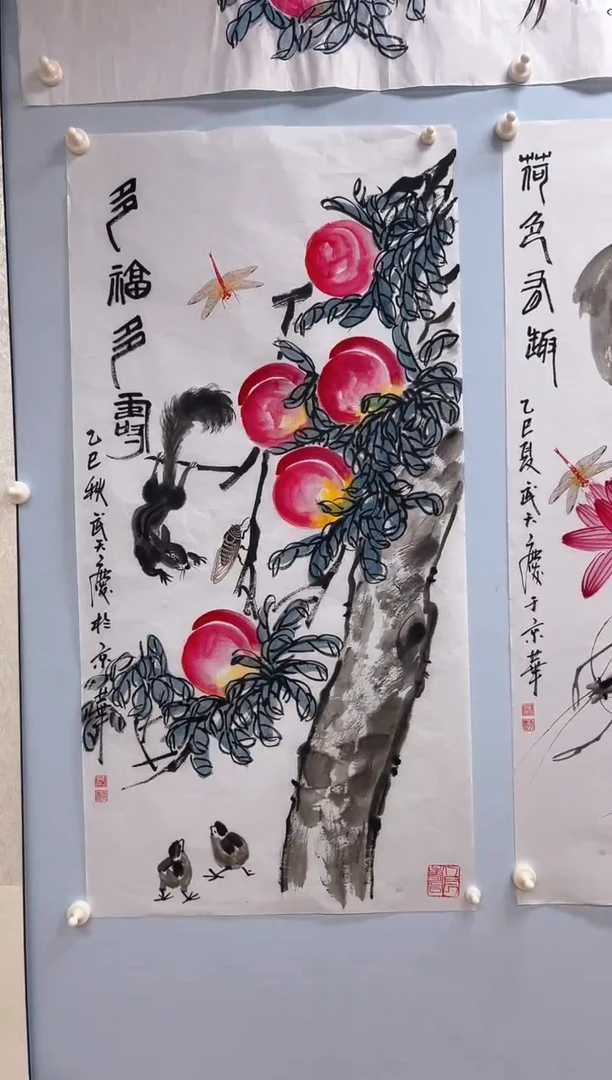 多福多壽
乙巳秋武大慶於京華
荷色有趣
乙巳夏武大慶于京華